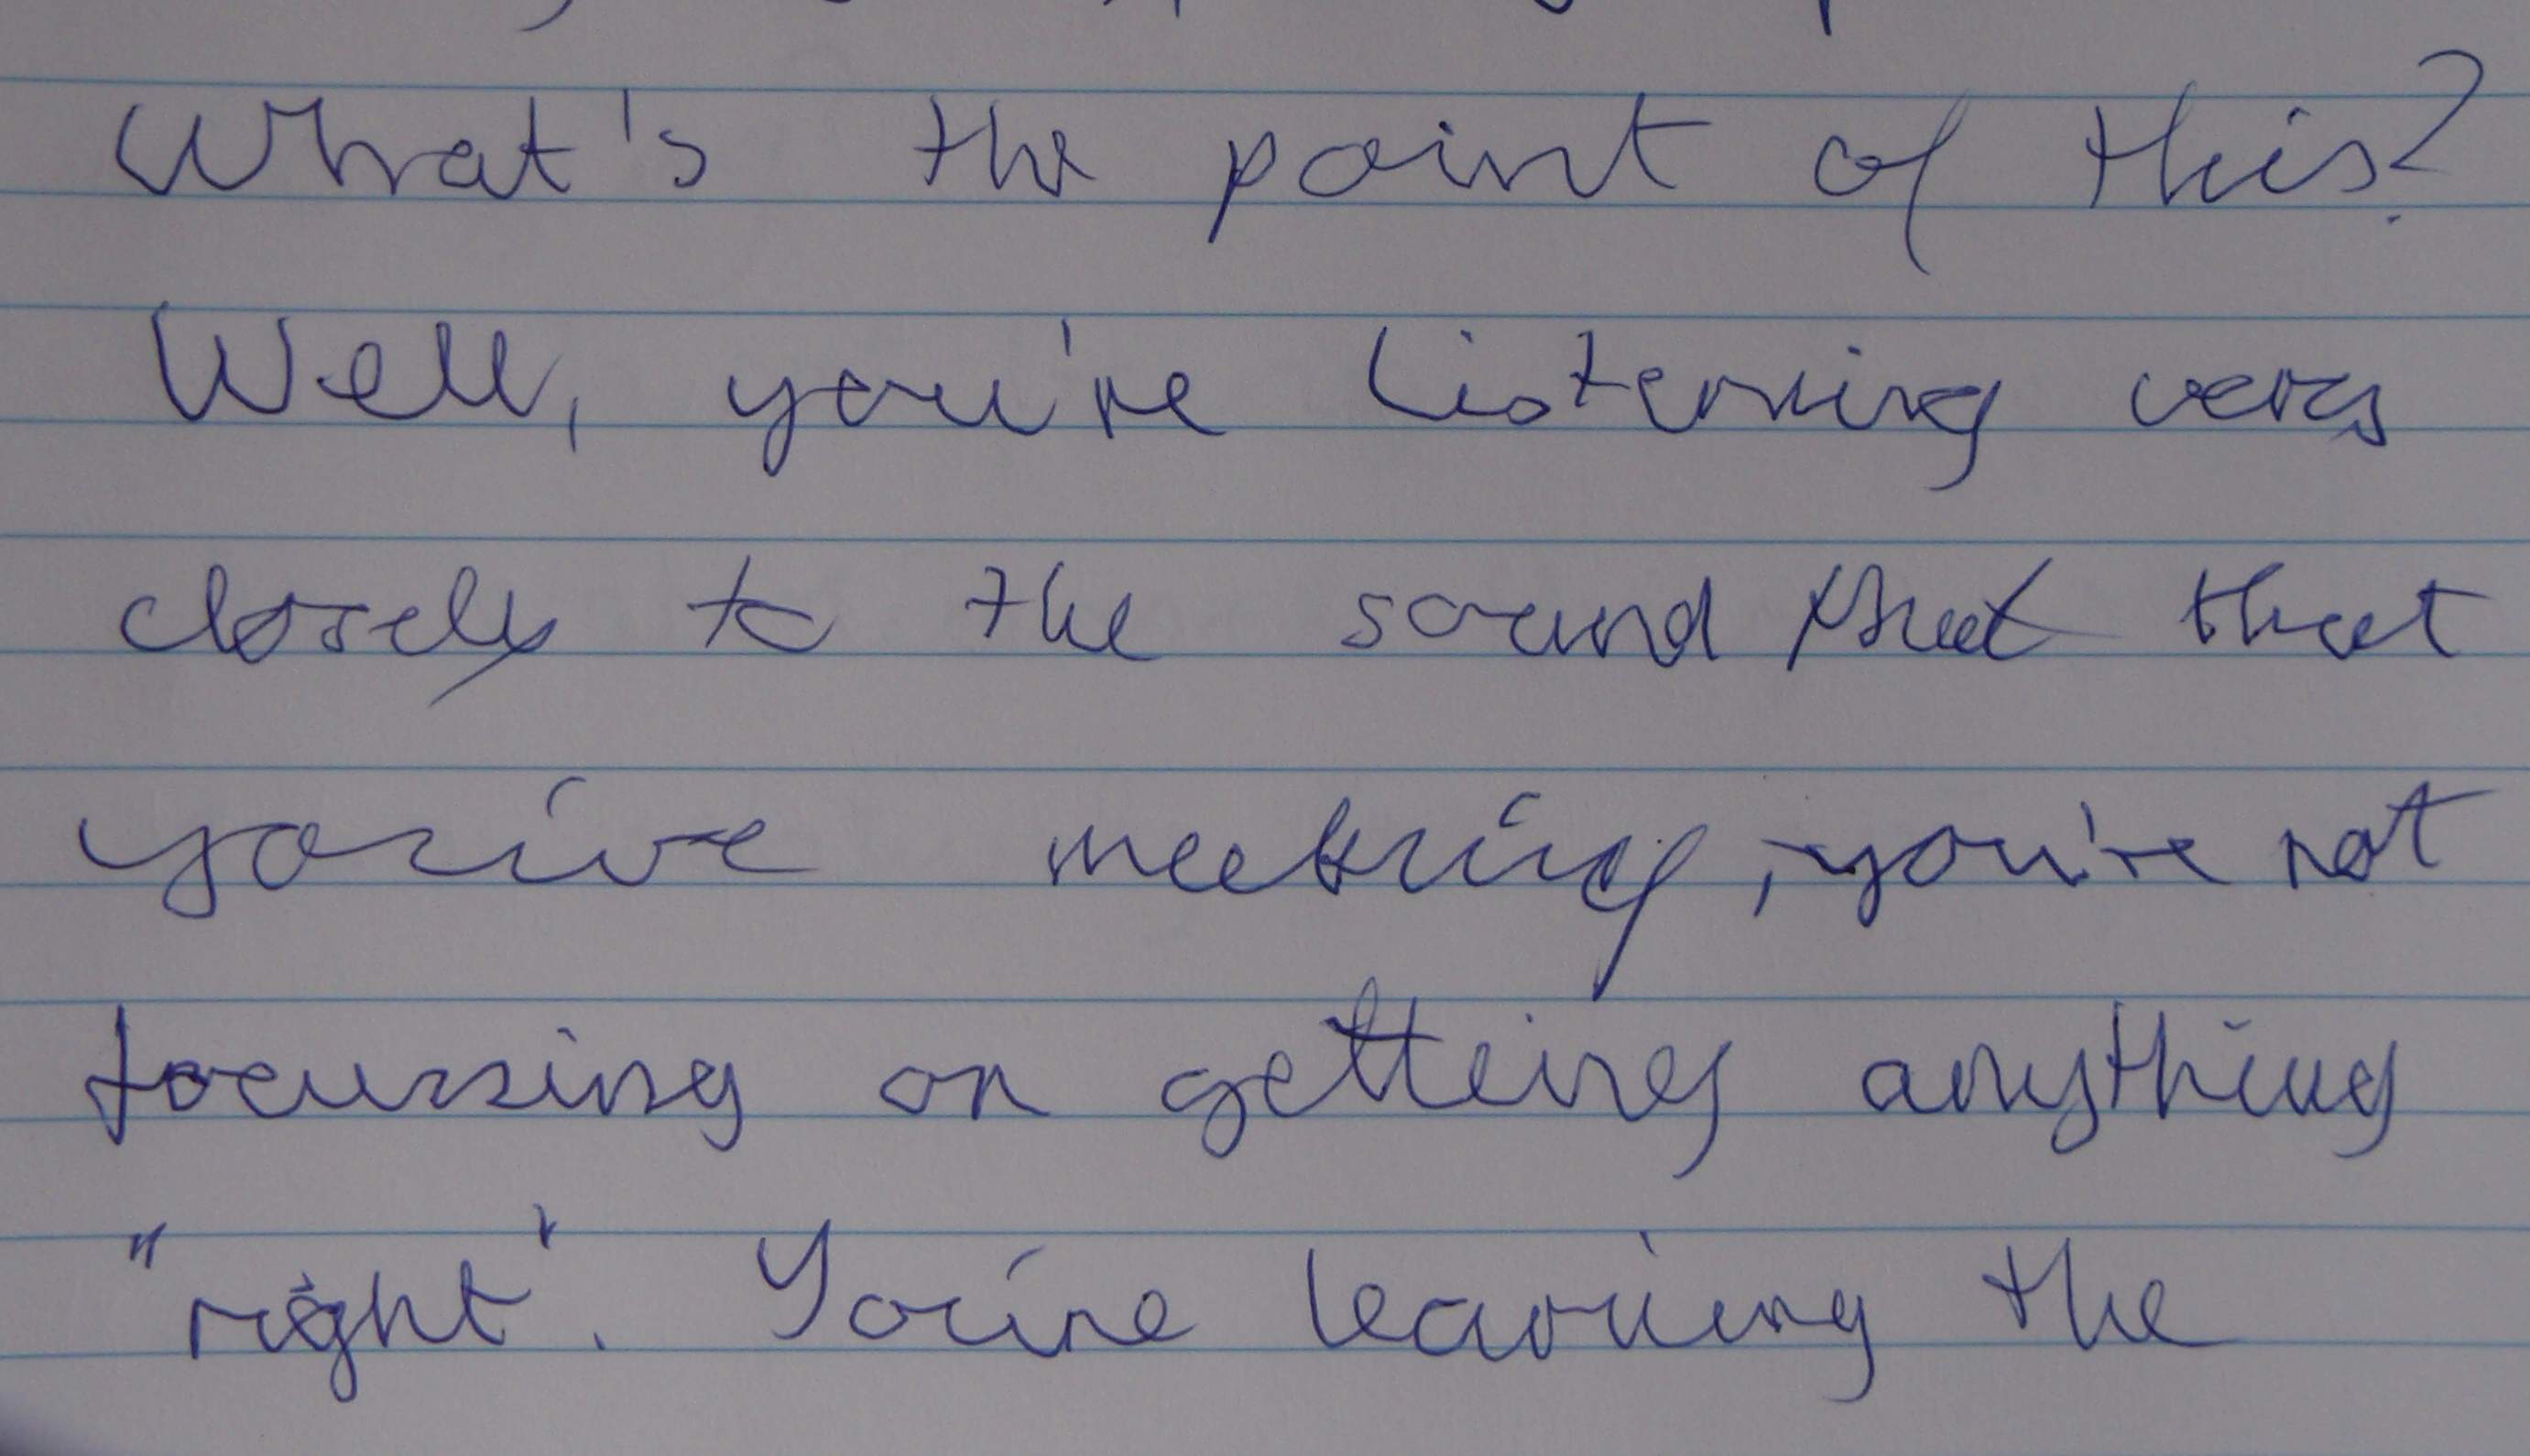 What's the point of this?
Well, you're listening very
closely to the sound that that
you're making, you're not
focussing on getting anything
"right". You're learning the